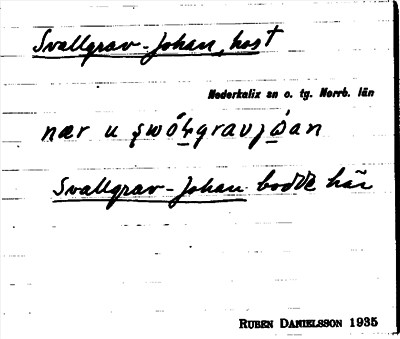 Svallgrav-Johan, host
Nederkalix sn o. tg. Norrb. län
nær u swólgravjóan
Svallgrav-Johan bodde här
RUBEN DANIELSSON 1935